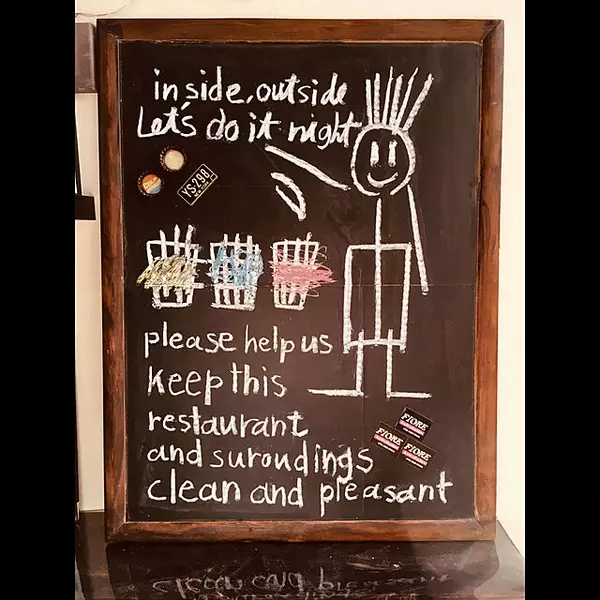 inside, outside
Let's do it night
YS298
please help us
keep this
restaurant
and suroudings
clean and pleasant
FIORE
FIORE
FIORE